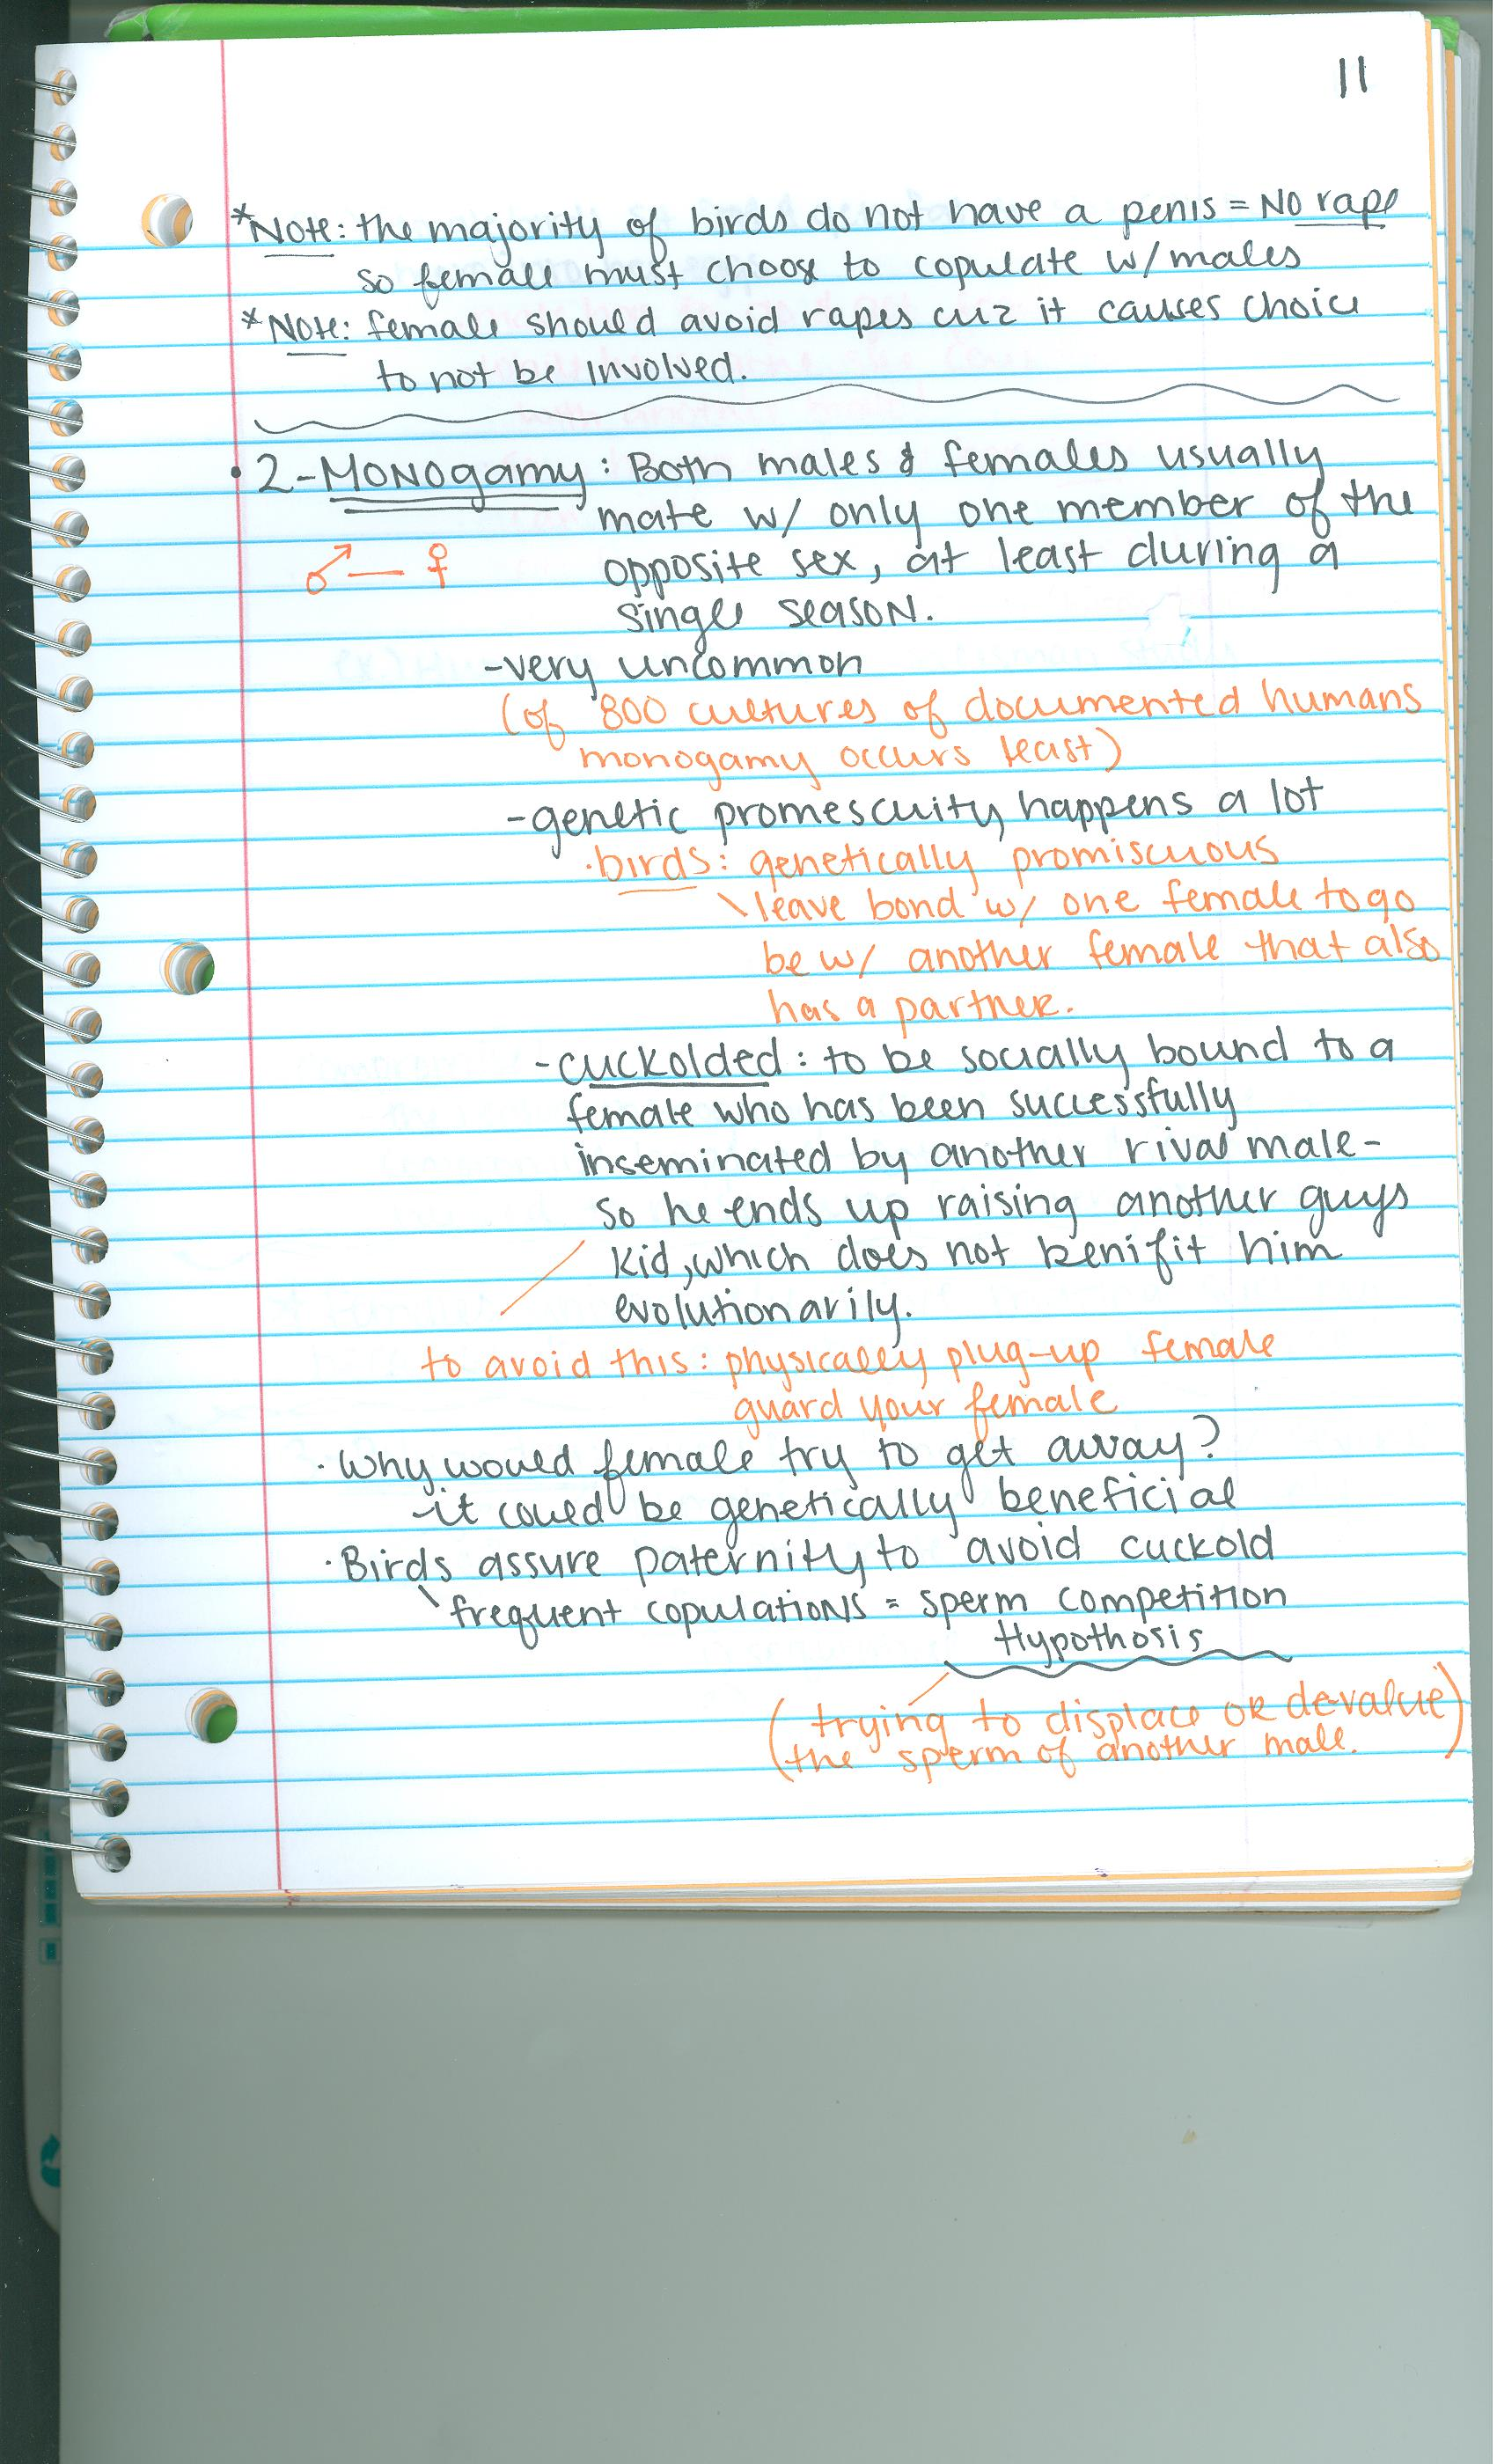 11
*Note: the majority of birds do not have a penis = No rape
so female must choose to copulate w/ males
*Note: female should avoid rapes cuz it causes choice
to not be involved.
• 2-Monogamy: Both males & females usually
mate w/ only one member of the
♂—♀ opposite sex, at least during a
single season.
-very uncommon
(of 800 cultures of documented humans
monogamy occurs least)
-genetic promescuity happens a lot
·birds: genetically promiscuous
\leave bond w/ one female to go
be w/ another female that also
has a partner.
-cuckolded: to be socially bound to a
female who has been successfully
inseminated by another rival male-
so he ends up raising another guys
kid, which does not benifit him
evolutionarily.
to avoid this: physically plug-up female
guard your female
·Why would female try to get away?
-it could be genetically beneficial
·Birds assure paternity to avoid cuckold
\frequent copulations = sperm competition
Hypothosis
(trying to displace or devalue)
(the sperm of another male.